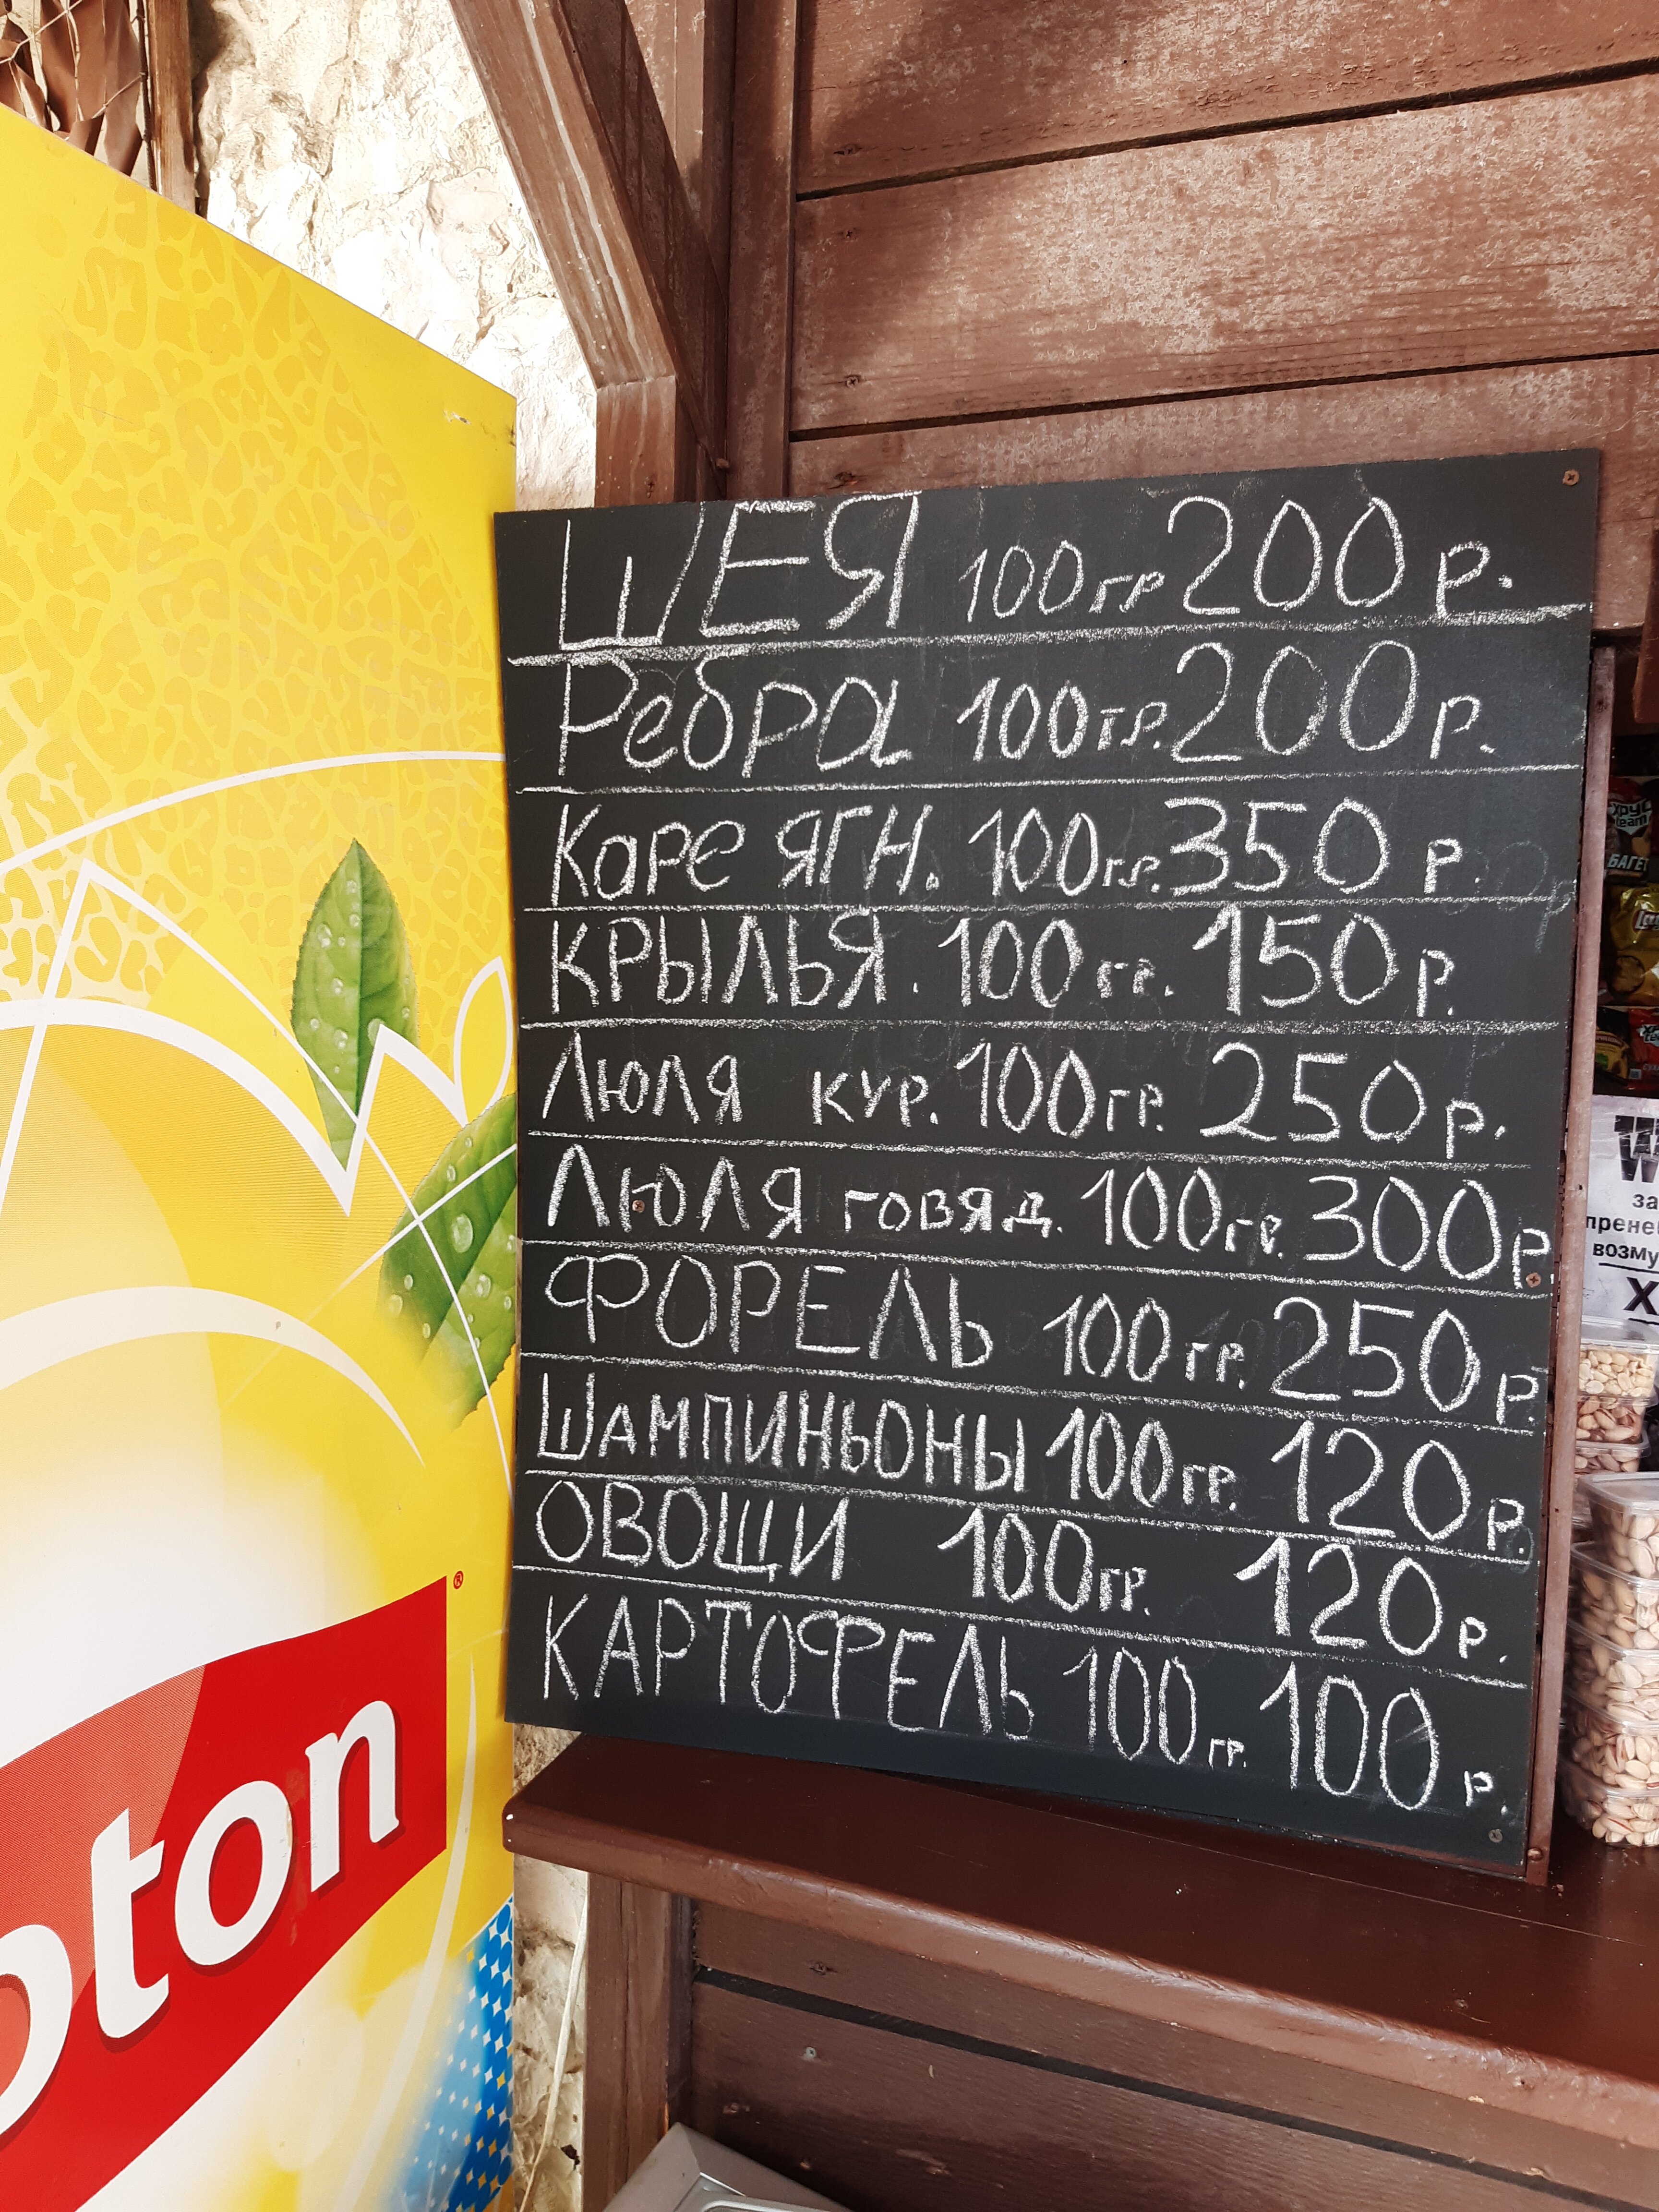 ШЕЯ 100гр 200р.
Ребра 100гр. 200р.
Каре ЯГН. 100гр. 350 р.
КРЫЛЬЯ. 100 гр. 150р.
Люля кур. 100гр. 250р.
Люля говяд. 100гр. 300р
ФОРЕЛЬ 100 гр. 250р.
ШАМПИНЬОНЫ 100гр. 120р.
ОВОЩИ 100гр. 120р.
КАРТОФЕЛЬ 100гр. 100р.
pton
®
team
БАГЕТ
за
пренеб
возму
Х